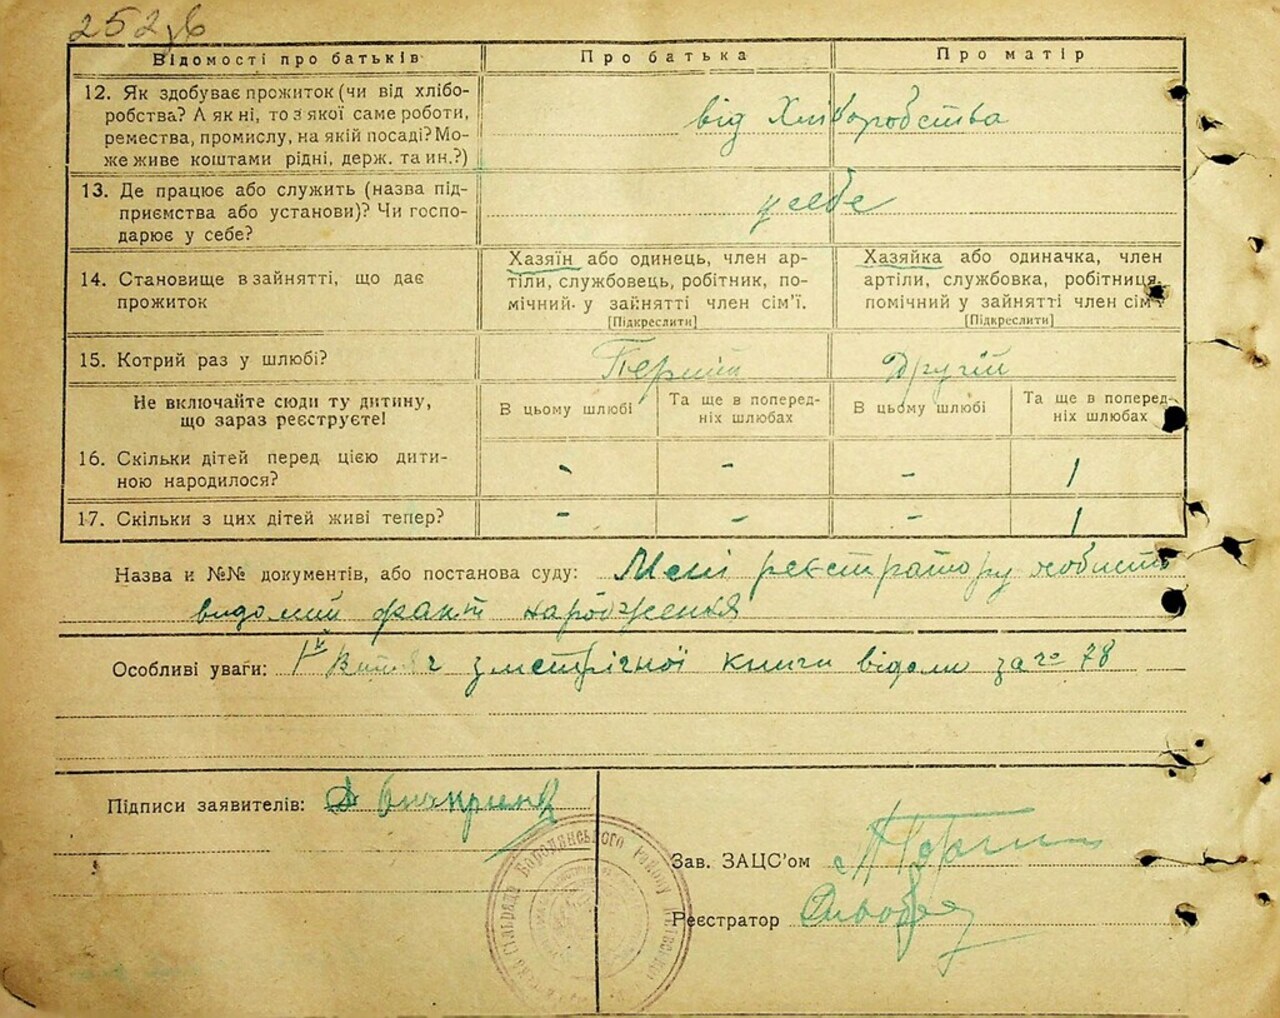 252зв
Відомості про батьків Про батька Про матір
12. Як здобуває прожиток (чи від хлібо-
робства? А як ні, то з якої саме роботи,
ремества, промислу, на якій посаді? Мо-
же живе коштами рідні, держ. та ин.?)
від Хліборобства
13. Де працює або служить (назва під-
приємства або установи)? Чи госпо-
дарює у себе?
у себе
14. Становище в зайнятті, що дає
прожиток
Хазяїн або одинець, член ар-
тіли, службовець, робітник, по-
мічний у зайнятті член сім'ї.
[Підкреслити]
Хазяйка або одиначка, член
артіли, службовка, робітниця,
помічний у зайнятті член сім'ї
[Підкреслити]
15. Котрий раз у шлюбі? Перший Другій
Не включайте сюди ту дитину,
що зараз реєструєте!
В цьому шлюбі
Та ще в поперед-
ніх шлюбах
В цьому шлюбі
Та ще в поперед-
ніх шлюбах
16. Скільки дітей перед цією дити-
ною народилося?
- - - 1
17. Скільки з цих дітей живі тепер? - - - 1
Назва и №№ документів, або постанова суду: Мені реєстратору особисто
видомий факт народження
Особливі уваги: Витяг з метрічної книги відали за № 78
Підписи заявителів:
Зав. ЗАЦС'ом
Реєстратор
Бородянського району